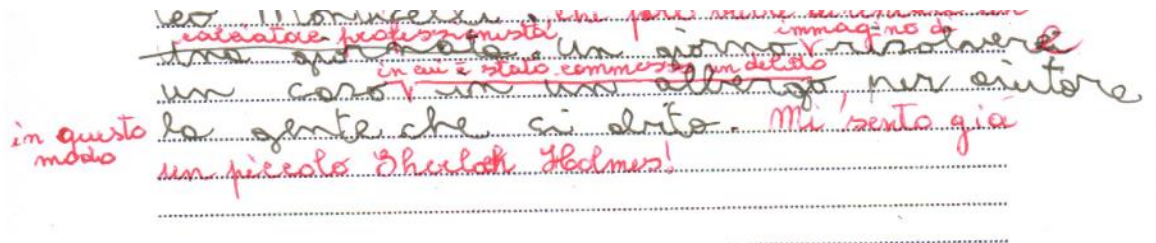 calciatore professionista, immagino di
una giornata. Un giorno risolvere
in cui è stato commesso un delitto
un caso in un albergo per aiutare
in questo la gente che ci abita. Mi sento già
modo
un piccolo Sherlock Holmes!